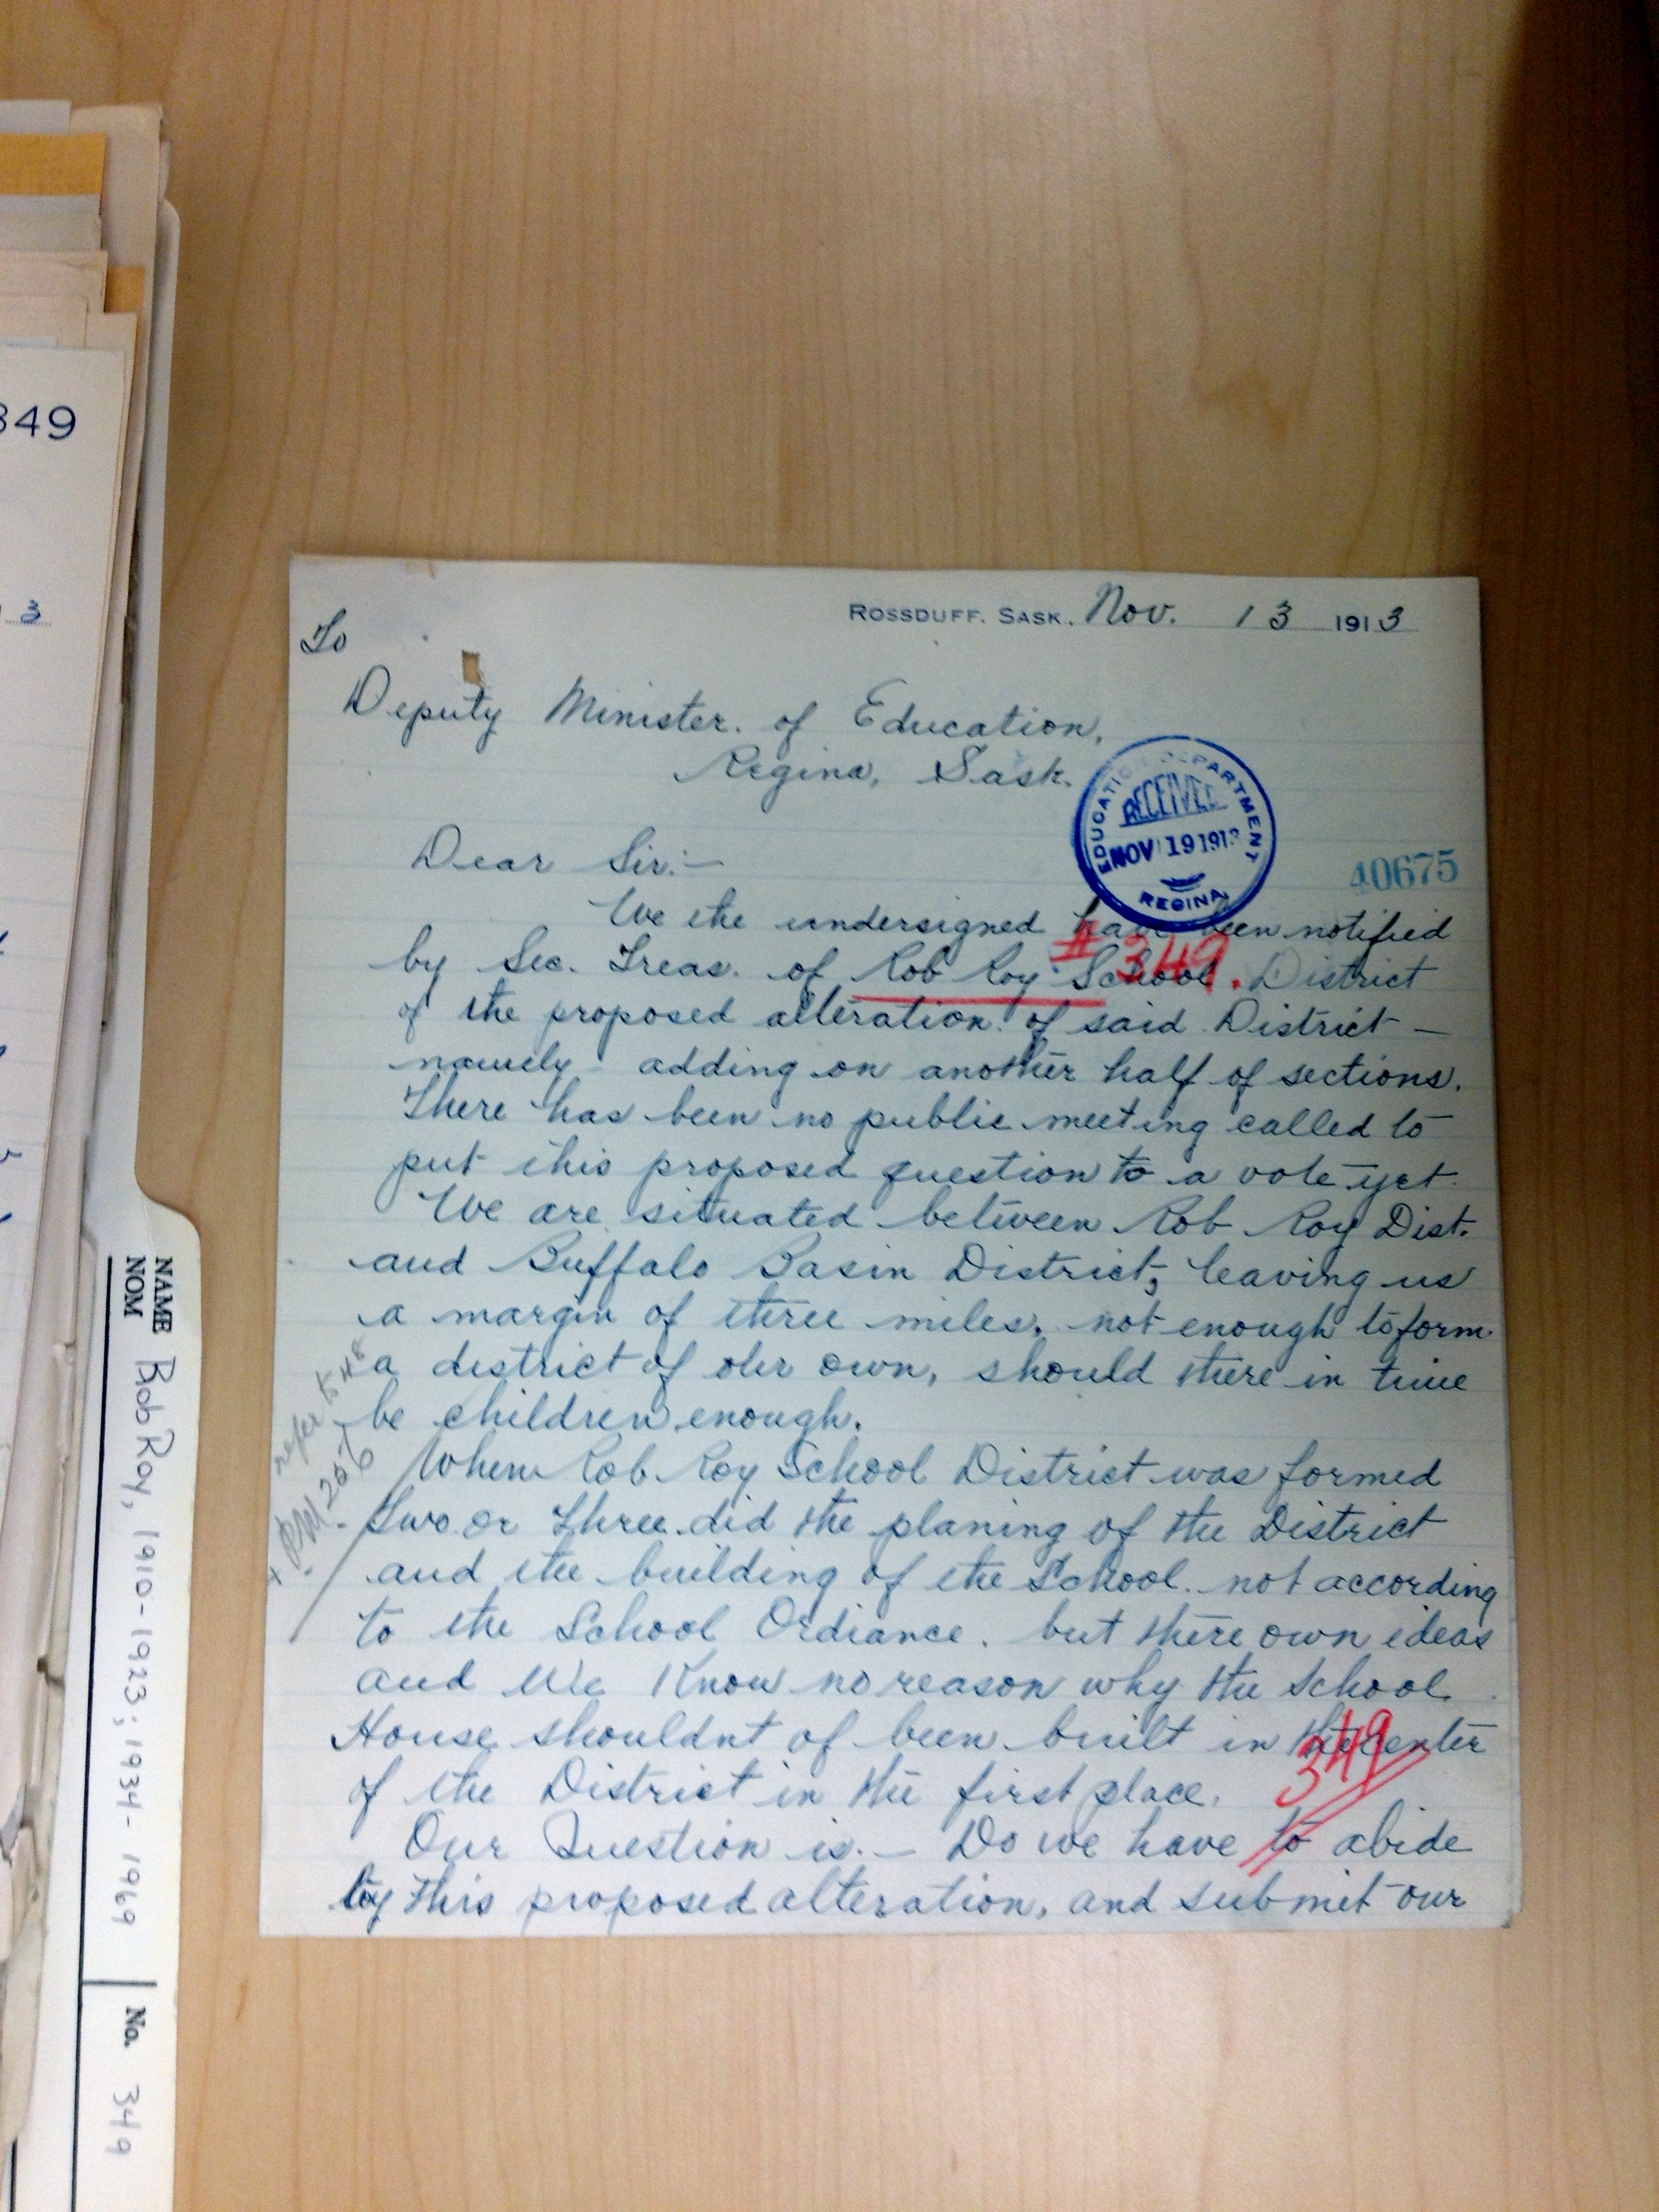 349
3
ROSSDUFF. SASK. Nov. 13 1913
To
Deputy Minister. of Education,
Regina, Sask.
EDUCATION DEPARTMENT
RECEIVED
NOV 19 1913
REGINA
Dear Sir:—
40675
We the undersigned have been notified
# 349.
by Sec. Treas. of Rob Roy School District
of the proposed alteration. of said District —
namely adding on another half of sections.
There has been no public meeting called to
put this proposed question to a vote yet.
We are situated between Rob Roy Dist.
and Buffalo Basin District, leaving us
a margin of three miles. not enough to form
a district of our own, should there in time
be children enough.
When Rob Roy School District was formed
Two or Three did the planing of the District
and the building of the School. not according
to the School Ordiance. but there own ideas
and We Know no reason why the School
House shouldnt of been built in the center
of the District in the first place.
349
Our Question is.— Do we have to abide
by this proposed alteration, and submit our
refer to 48
NAME
NOM
Rob Roy, 1910-1923; 1934-1969
No. 349